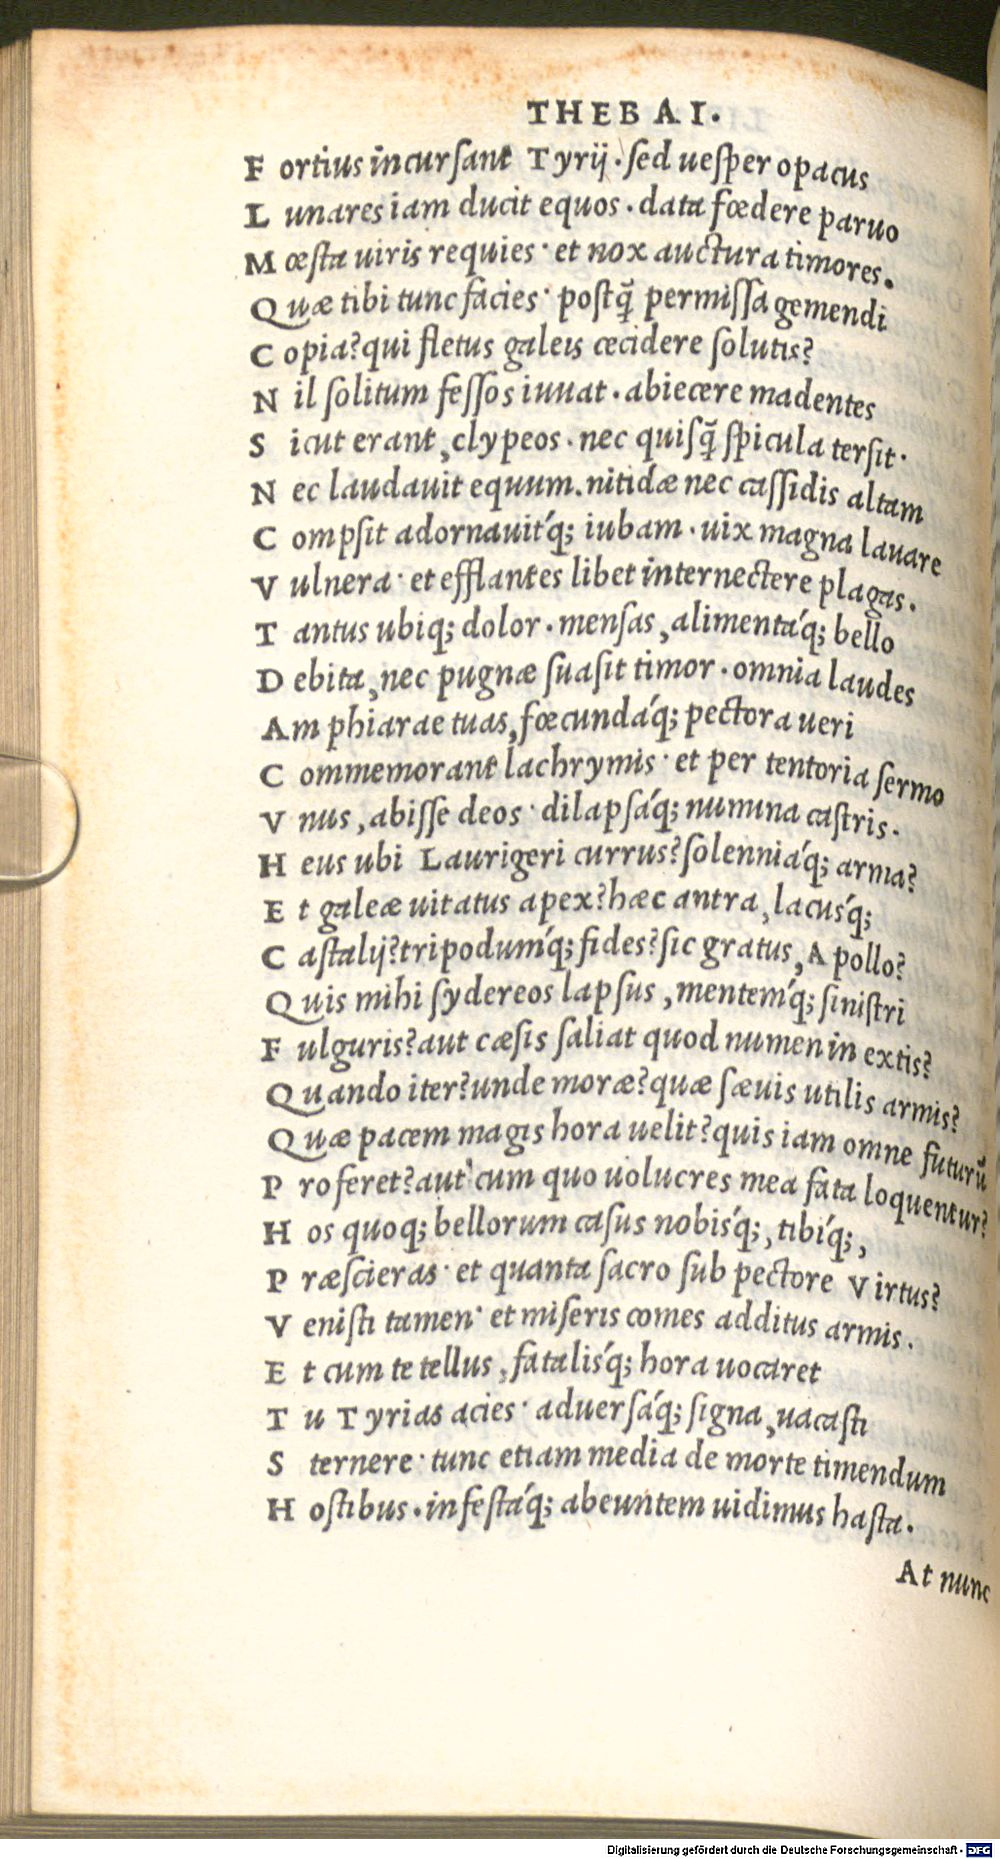 THEBAI.
F ortius incurſant Tyrij·ſed ueſper opacus
L unares iam ducit equos·data fœdere paruo
M œſta uiris requies· et nox auctura timores.
Q uæ tibi tunc facies· poſtꝗ̃ permiſſa gemendi
C opia?qui fletus galeis cecidere ſolutis?
N il ſolitum feſſos iuuat·abiecere madentes
S icut erant,clypeos·nec quiſꝗ̃ ſpicula terſit·
N ec laudauit equum.nitidæ nec caſſidis altam
C ompſit adornauit´q; iubam·uix magna lauare
V ulnera· et efflantes libet internectere plagas.
T antus ubiq; dolor·menſas,alimentá´q; bello
D ebita,nec pugnæ ſuaſit timor·omnia laudes
A mphiarae tuas,fœcundá´q; pectora ueri
C ommemorant lachrymis· et per tentoria ſermo
V nus,abiſſe deos· dilapſá´q; numina caſtris.
H eus ubi Laurigeri currus?ſolenniá´q; arma?
E t galeæ uitatus apex?hæc antra,lacuś´q;
C aſtalij?tripodum´q; fides?ſic gratus,Apollo?
Q uis mihi ſydereos lapſus,mentem´q; ſiniſtri
F ulguris?aut cæſis ſaliat quod numen in extis?
Q uando iter?unde moræ?quæ ſæuis utilis armis?
Q uæ pacem magis hora uelit?quis iam omne futurũ
P roferet?aut cum quo uolucres mea fata loquentur?
H os quoq; bellorum caſus nobis´q;,tibi´q;,
P ræſcieras· et quanta ſacro ſub pectore Virtus?
V eniſti tamen· et miſeris comes additus armis.
E t cum te tellus,fatalis´q; hora uocaret
T u Tyrias acies· aduerſá´q; ſigna,uacaſti
S ternere·tunc etiam media de morte timendum
H oſtibus·infeſtá´q; abeuntem uidimus haſta.
At nunc
Digitalisierung gefördert durch die Deutsche Forschungsgemeinschaft - DFG